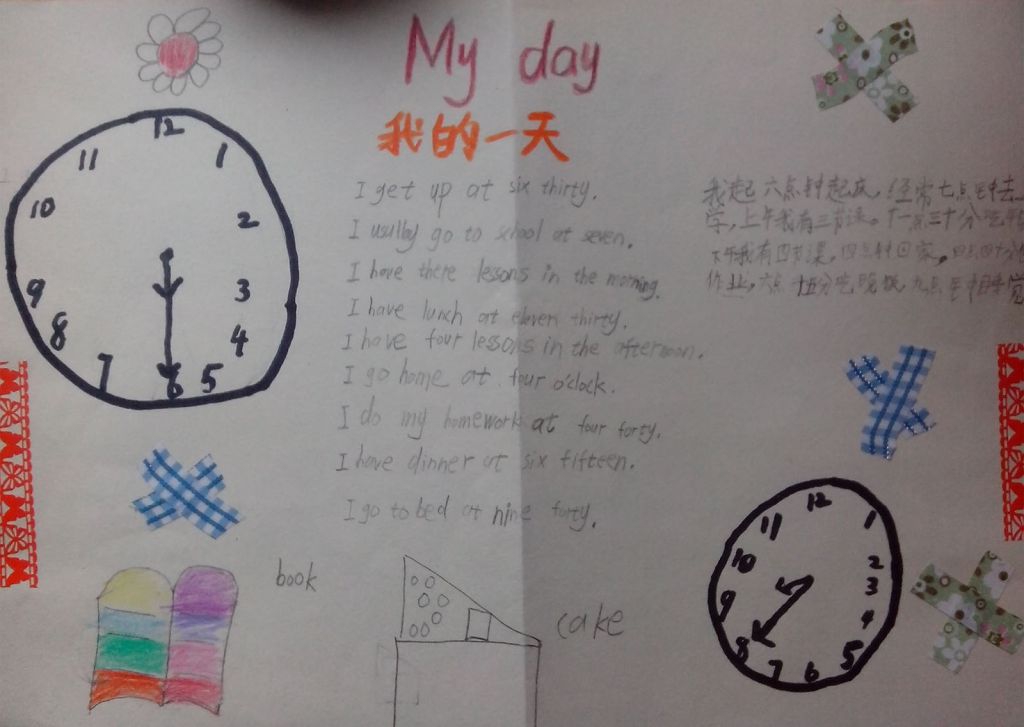 My day
我的一天
12
11
1
10
2
9
3
8
4
7
6
5
I get up at six thirty.
I usullby go to school at seven.
I have there lessons in the morning.
I have lunch at eleven thirty.
I have four lessons in the afternoon.
I go home at four o'clock.
I do my homework at four forty.
I have dinner at six fifteen.
I go to bed at nine forty.
我起六点钟起床,经常七点钟去
学,上午我有三节课。十一点三十分吃午
下午我有四节课,四点钟回家。四点四十分
作业,六点十五分吃晚饭,九点
book
cake
12
11
1
10
2
9
3
8
4
7
6
5